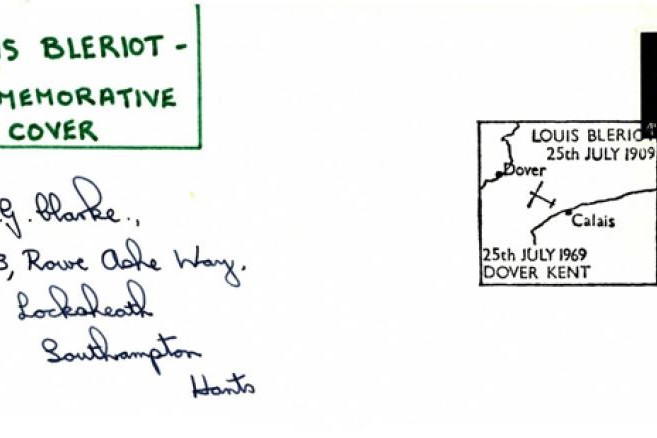 IS BLERIOT -
MEMORATIVE
COVER
G. Clarke.,
3, Rowe Ashe Way,
Locksheath
Southampton
Hants
LOUIS BLERIOT
25th JULY 1909
Dover
Calais
25th JULY 1969
DOVER KENT